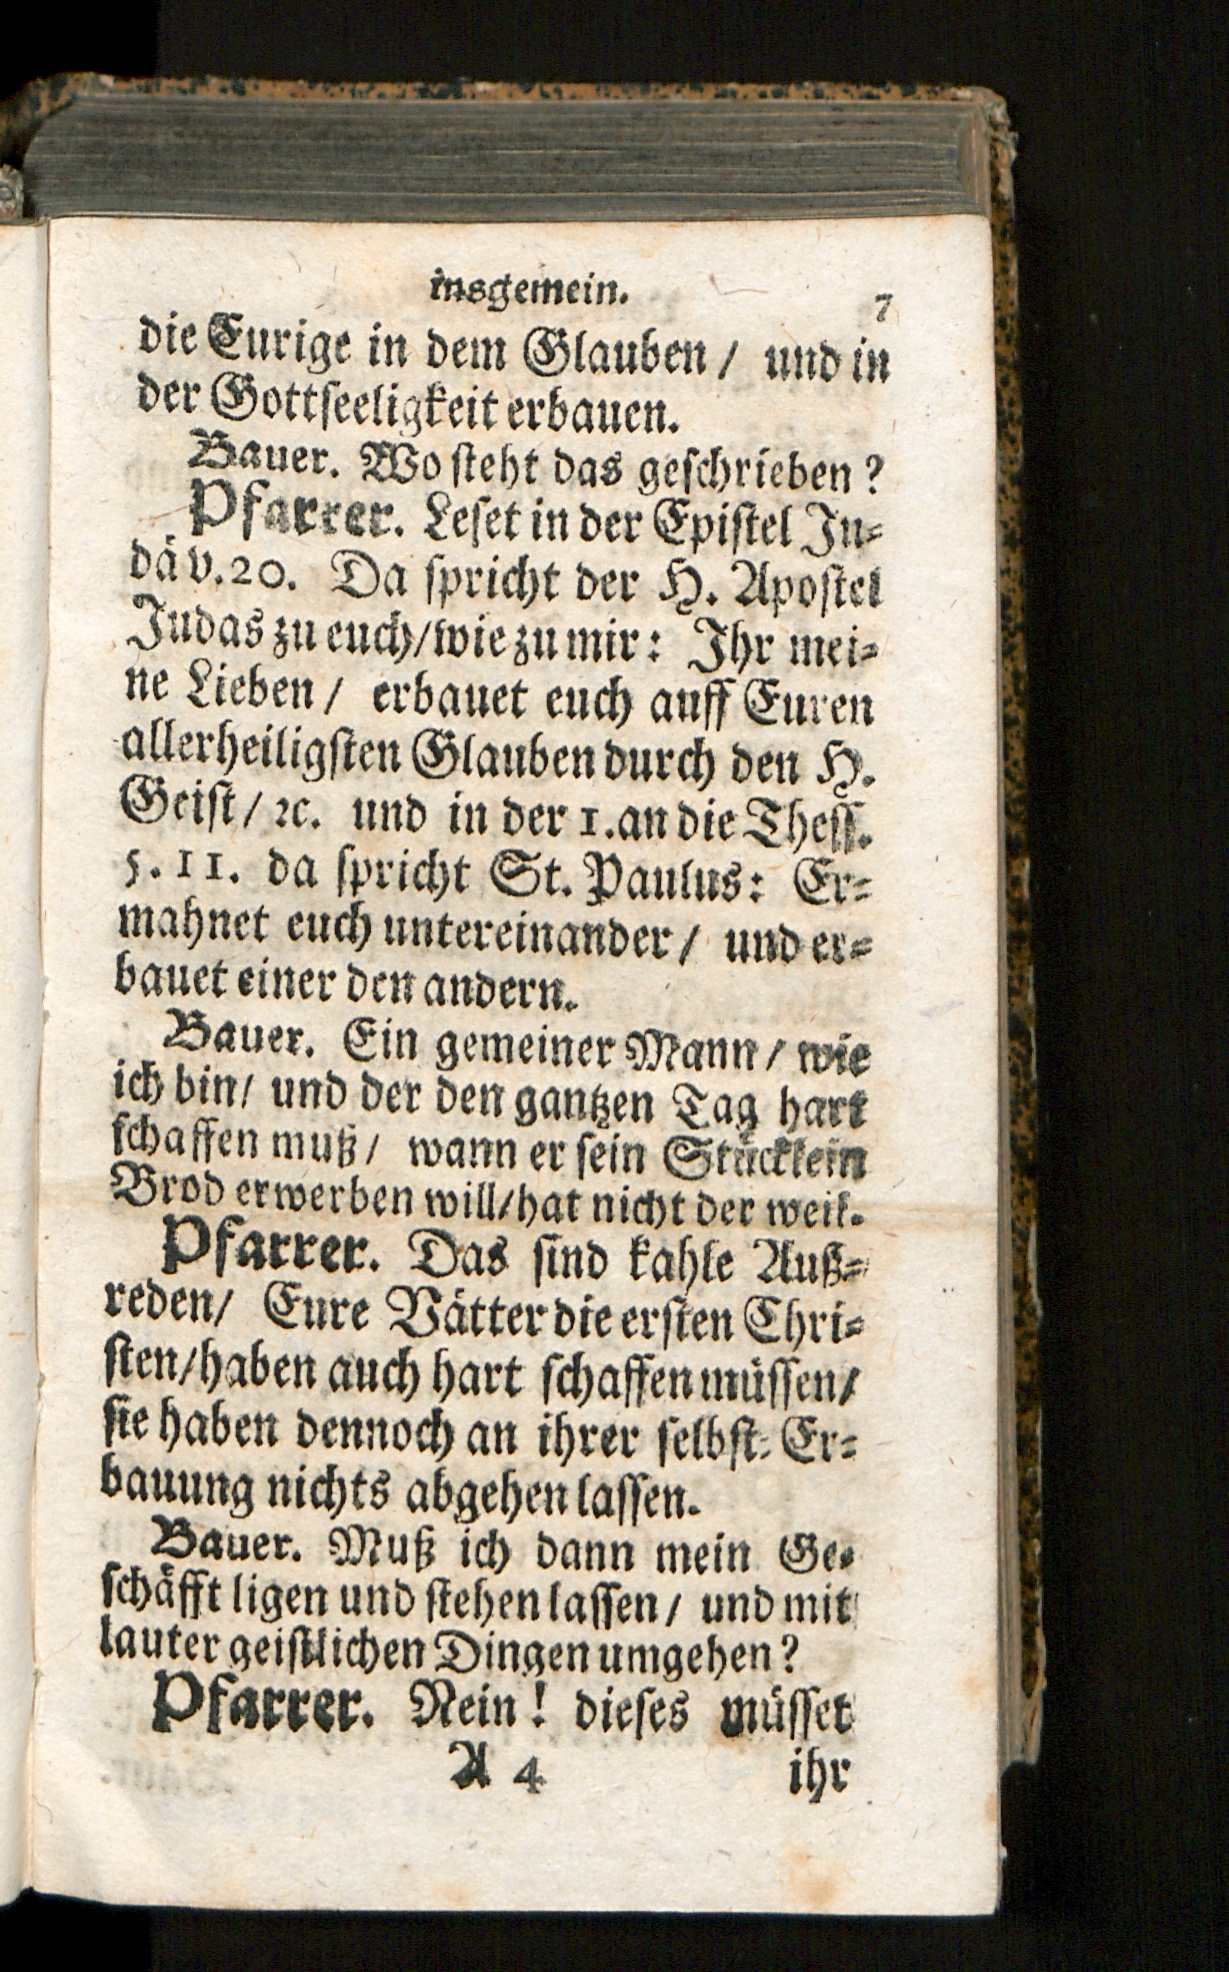 insgemein. 7
die Eurige in dem Glauben / und in
der Gottseeligkeit erbauen.
Bauer. Wo steht das geschrieben?
Pfarrer. Leset in der Epistel Ju-
dä v. 20. Da spricht der H. Apostel
Judas zu euch / wie zu mir: Ihr mei-
ne Lieben / erbauet euch auff Euren
allerheiligsten Glauben durch den H.
Geist / ꝛc. und in der 1. an die Thess.
5. 11. da spricht St. Paulus: Er-
mahnet euch untereinander / und er-
bauet einer den andern.
Bauer. Ein gemeiner Mann / wie
ich bin / und der den gantzen Tag hart
schaffen muß / wann er sein Stücklein
Brod erwerben will / hat nicht der weil.
Pfarrer. Das sind kahle Auß-
reden / Eure Vätter die ersten Chri-
sten / haben auch hart schaffen müssen /
sie haben dennoch an ihrer selbst-Er-
bauung nichts abgehen lassen.
Bauer. Muß ich dann mein Ge-
schäfft ligen und stehen lassen / und mit
lauter geistlichen Dingen umgehen?
Pfarrer. Nein! dieses müsset
A 4 ihr